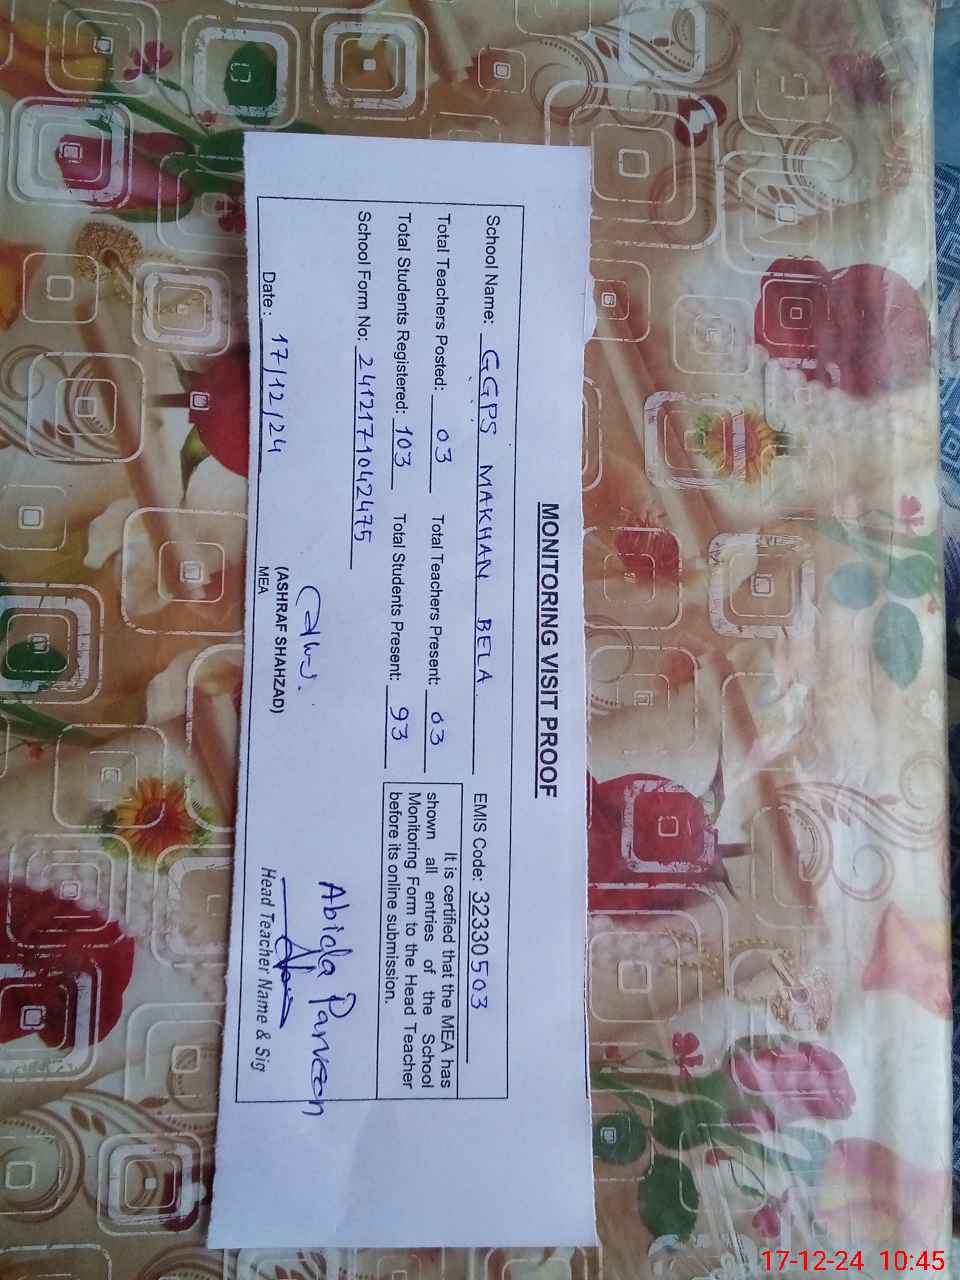 MONITORING VISIT PROOF
School Name: GGPS MAKHAN BELA EMIS Code: 32330503
Total Teachers Posted: 03 Total Teachers Present: 03
Total Students Registered: 103 Total Students Present: 93
School Form No: 2412171042475
It is certified that the MEA has
shown all entries of the School
Monitoring Form to the Head Teacher
before its online submission.
Abida Parveen
Date: 17/12/24
(ASHRAF SHAHZAD)
MEA
Head Teacher Name & Sig
17-12-24 10:45